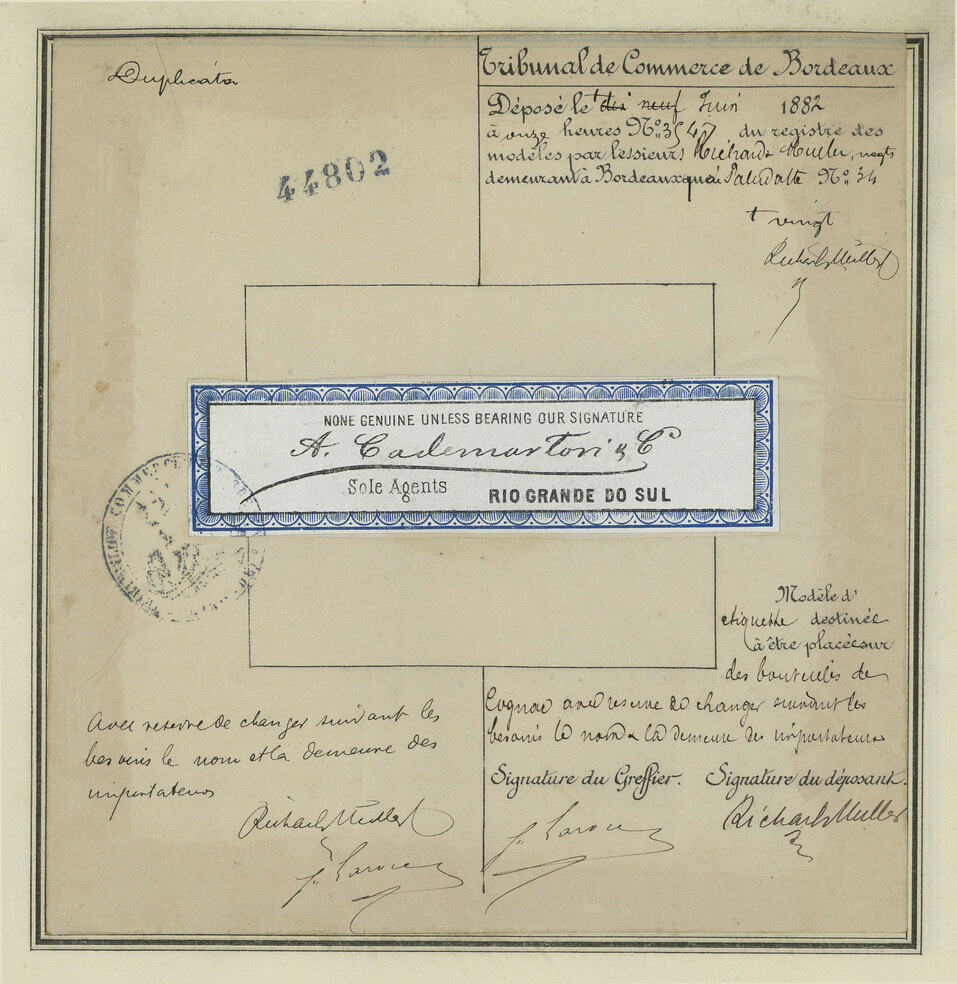 Duplicata
Tribunal de Commerce de Bordeaux
Déposé le † dix neuf Juin 1882
à onze heures No. 3547 du registre des
modèles par les sieurs Richard & Muller, negts
demeurant à Bordeaux quai Paludatte No. 34
44802
† vingt
Richard & Muller
NONE GENUINE UNLESS BEARING OUR SIGNATURE
A. Cademartori & C
Sole Agents
RIO GRANDE DO SUL
COMMERCE
Modèle d'
etiquette destinée
à être placée sur
des bouteilles de
Cognac avec reserve de changer suivant les
besoins le nom & la demeure des importateurs
Avec reserve de changer suivant les
besoins le nom et la demeure des
importateurs
Richard & Muller
Signature du Greffier. Signature du déposant.
Richard & Muller